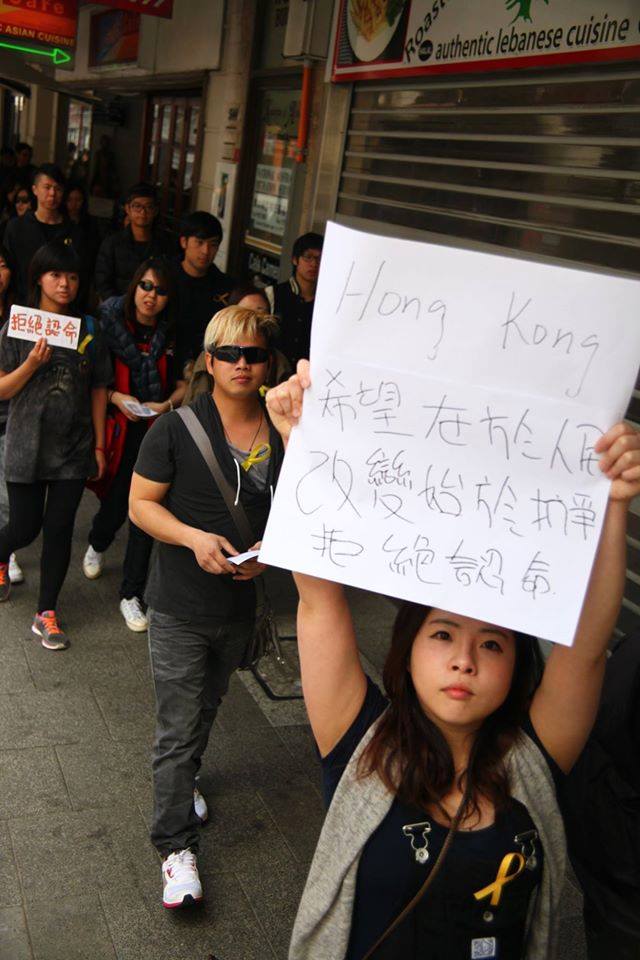 Care
ASIAN CUISINE
Roast
authentic lebanese cuisine
拒絕認命
Hong Kong
希望在於人民
改變始於抗爭
拒絕認命